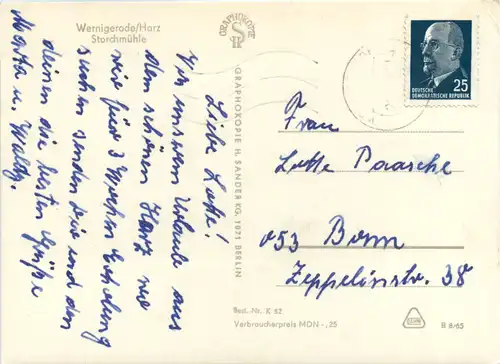 Wernigerode/Harz
Storchmühle
Liebe Lotte!
Von unserem Urlaub aus
dem schönen Harz wo
wir für 3 Wochen Erholung
suchen senden Dir und den
deinen die besten Grüße
Martha u. Waldy.
GRAPHOKOPIE
GRAPHOKOPIE H. SANDER KG, 1971 BERLIN
25
DEUTSCHE
DEMOKRATISCHE REPUBLIK
Frau
Lotte Paasche
053 Bonn
Zeppelinstr. 38
Best.-Nr. K 62
Verbraucherpreis MDN -,25
B 8/65